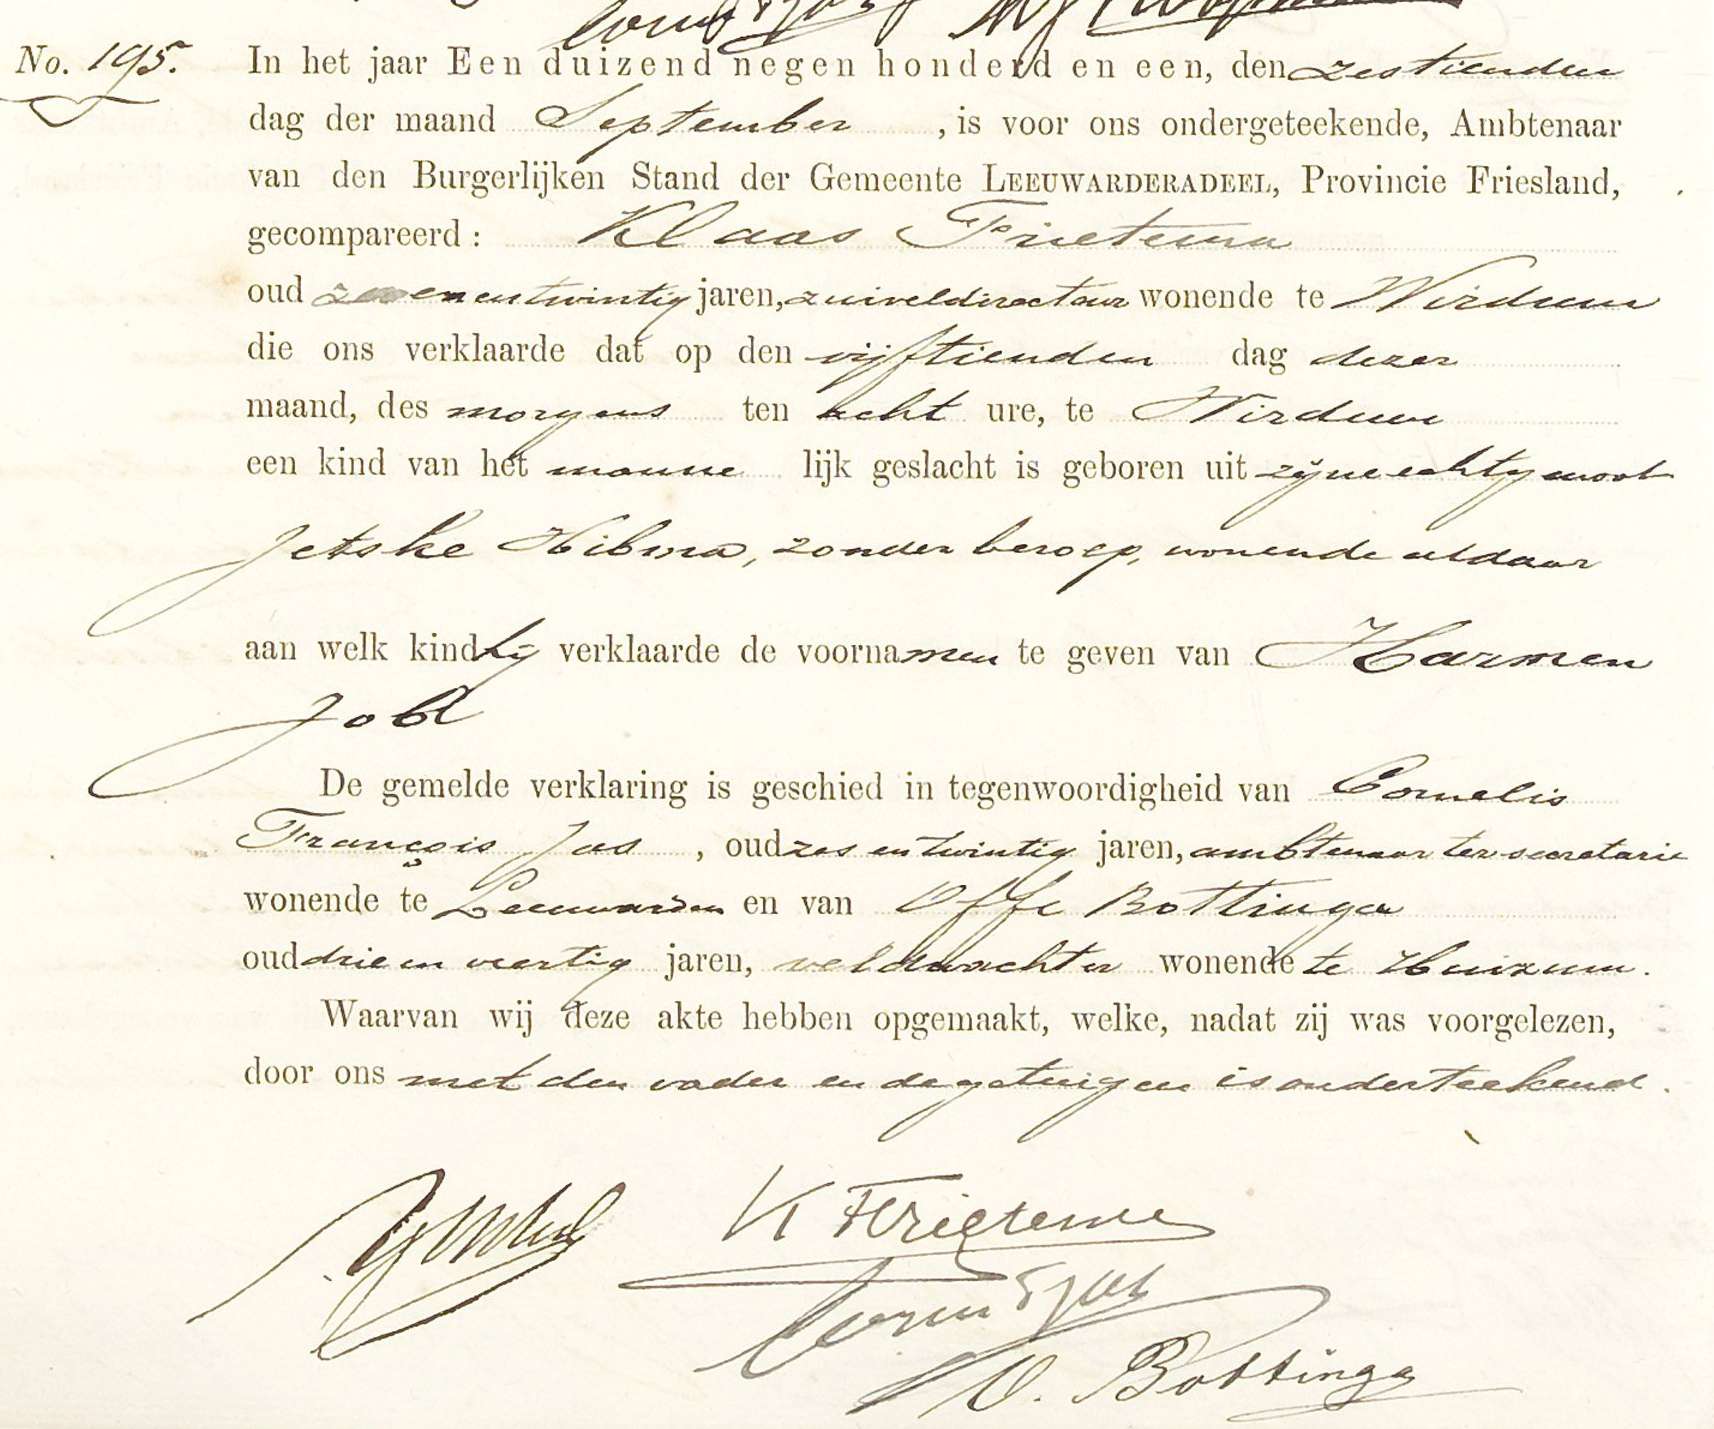 No. 195.
In het jaar Een duizend negen honderd en een, den zestienden
dag der maand September, is voor ons ondergeteekende, Ambtenaar
van den Burgerlijken Stand der Gemeente LEEUWARDERADEEL, Provincie Friesland,
gecompareerd: Klaas Frietema
oud zevenentwintig jaren, zuiveldirecteur wonende te Wirdum
die ons verklaarde dat op den vijftienden dag dezer
maand, des morgens ten acht ure, te Wirdum
een kind van het mannelijk geslacht is geboren uit zijne echtgenoot
Jetske Hibma, zonder beroep, wonende aldaar
aan welk kind hij verklaarde de voornamen te geven van Harmen
Jobl
De gemelde verklaring is geschied in tegenwoordigheid van Cornelis
François Jas, oud zes en twintig jaren, ambtenaar ter secretarie
wonende te Leeuwarden en van Offe Bottinga
oud drie en veertig jaren, veldwachter wonende te Huizum.
Waarvan wij deze akte hebben opgemaakt, welke, nadat zij was voorgelezen,
door ons met den vader en de getuigen is onderteekend.
K Frietema
O. Bottinga